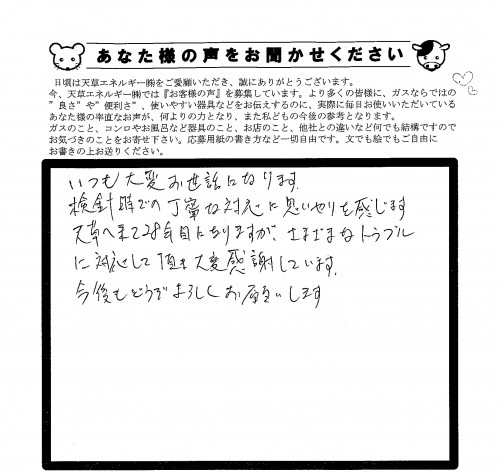 あなた様の声をお聞かせください
日頃は天草エネルギー㈱をご愛顧いただき、誠にありがとうございます。
今、天草エネルギー㈱では『お客様の声』を募集しています。より多くの皆様に、ガスならではの
”良さ”や”便利さ”、使いやすい器具などをお伝えするのに、実際に毎日お使いいただいている
あなた様の率直なお声が、何よりの力となり、また私どもの今後の参考となります。
ガスのこと、コンロやお風呂など器具のこと、お店のこと、他社との違いなど何でも結構ですので
お気づきのことをお寄せ下さい。応募用紙の書き方など一切自由です。文でも絵でもご自由に
お書きの上お送りください。
いつも大変お世話になります.
検針時での丁寧な対応に思いやりを感じます
天草へ来て28年目になりますが、さまざまなトラブル
に対応して頂き大変感謝しています.
今後もどうぞよろしくお願いします